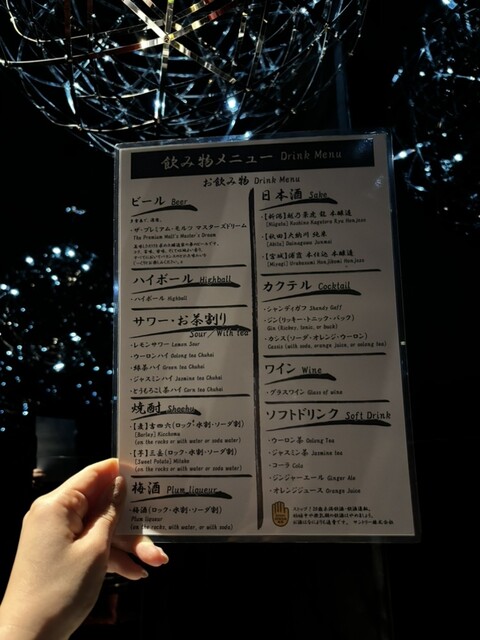 飲み物メニュー Drink Menu
お飲み物 Drink Menu
ビール Beer
・ザ・プレミアム・モルツ マスターズドリーム
The Premium Malt's Master's Dream
ハイボール Highball
・ハイボール Highball
サワー・お茶割り
Sour / With tea
・レモンサワー Lemon Sour
・ウーロンハイ Oolong tea Chuhai
・緑茶ハイ Green tea Chuhai
・ジャスミンハイ Jasmine tea Chuhai
・とうもろこし茶ハイ Corn tea Chuhai
焼酎 Shochu
・【麦】吉四六(ロック・水割・ソーダ割)
(Barley)
(on the rocks or with water or soda water)
・【芋】三岳(ロック・水割・ソーダ割)
(Sweet Potato) Mitake
(on the rocks or with water or soda water)
梅酒 Plum liqueur
・梅酒(ロック・水割・ソーダ割)
Plum liqueur
(on the rocks, with water, or with soda)
日本酒 Sake
・【新潟】越乃景虎 龍 本醸造
・【秋田】大納川 純米
(Akita) Dainagawa Junmai
・【宮城】浦霞 本仕込 本醸造
(Miyagi) Urakasumi Honjikomi Honjozo
カクテル Cocktail
・シャンディガフ Shandy Gaff
・ジン(リッキー・トニック・バック)
Gin (Rickey, tonic, or buck)
・カシス(ソーダ・オレンジ・ウーロン)
Cassis (with soda, orange juice, or oolong tea)
ワイン Wine
・グラスワイン Glass of wine
ソフトドリンク Soft Drink
・ウーロン茶 Oolong Tea
・ジャスミン茶 Jasmine tea
・コーラ Cola
・ジンジャーエール Ginger Ale
・オレンジジュース Orange Juice